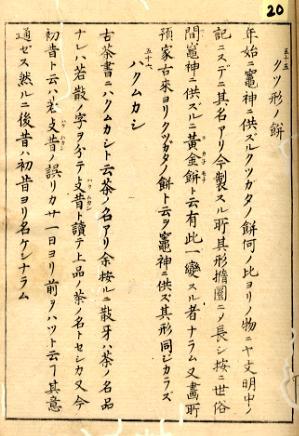 20
五十五
クツ形ノ餅
年始ニ竈神ニ供ズルクツガタノ餅何ノ比ヨリノ物ニヤ文明中ノ
記ニスデニ其名アリ今製スル所其形楕圜ニノ長シ按ニ世俗
間竈神ニ供ズルニ黄金餅ト云有此一變スル者ナラム又畫所
預家古来ヨリクツガタノ餅ト云ヲ竈神ニ供ズ其形同ジカラズ
五十六
ハクムカシ
古茶書ニハクムカシト云茶ノ名アリ余按ルニ散牙ハ茶ノ名品
ナレハ若散ノ字ヲ分テ昔ト讀テ上品ノ茶ノ名トセシカ又今
初昔ト云ハ若昔ノ誤リカサ一日ヨリ前ヲハツト云フ其意
通ゼス然ルニ後昔ハ初昔ヨリ名ケシナラム